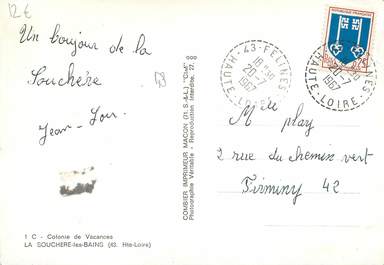 12€
Un bonjour de la
Souchère
Jean-Lou
1 C - Colonie de Vacances
LA SOUCHERE-les-BAINS (43. Hte-Loire)
COMBIER IMPRIMEUR MACON (71. S.-&-L.) "CIM"
Photographie Véritable - Reproduction Interdite.
43-FELINES
18-30
20-7
1967
HAUTE-LOIRE
REPUBLIQUE FRANÇAISE
43-FELINES
18-30
20-7
1967
HAUTE-LOIRE
Mme play
2 rue du chemin vert
Firminy 42